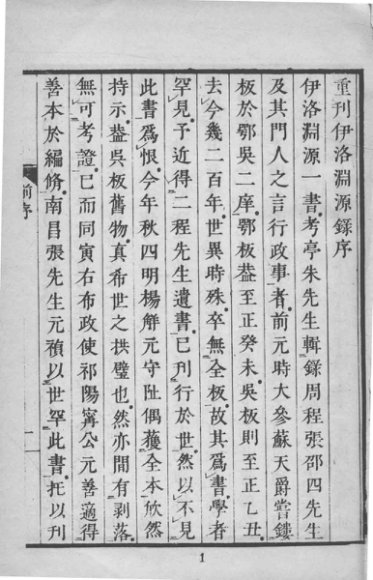 重刊伊洛淵源錄序
伊洛淵源一書考亭朱先生輯錄周程張邵四先生
及其門人之言行政事者前元時大參蘇天爵嘗鏤
板於鄂吳二庠鄂板葢至正癸未吳板則至正乙丑
去今幾二百年世異時殊卒無全板故其爲書學者
罕見予近得二程先生遺書已刊行於世然以不見
此書爲恨今年秋四明楊觧元守阯偶獲全本欣然
持示葢吳板舊物真希世之拱璧也然亦間有剥落
無可考證已而同寅右布政使祁陽寗公元善適得
善本於編脩南昌張先生元禎以世罕此書托以刊
前序
一
1